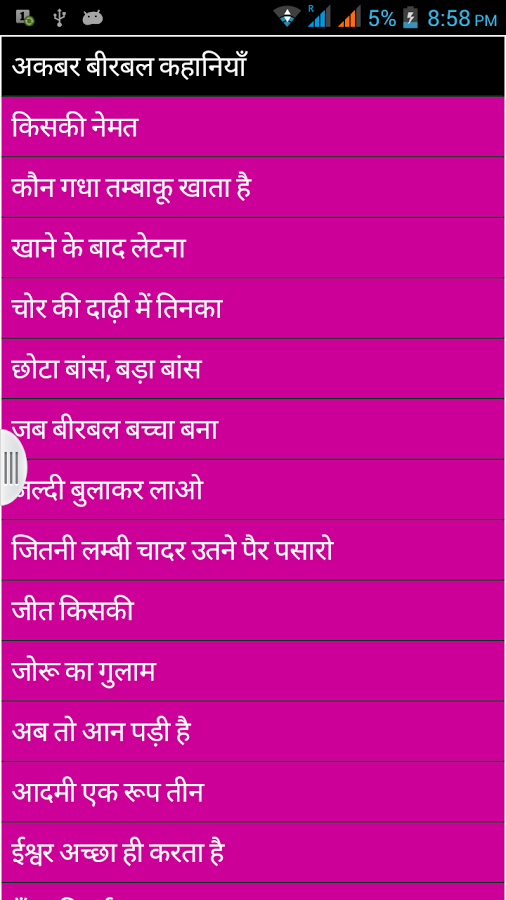 5% 8:58 PM
अकबर बीरबल कहानियाँ
किसकी नेमत
कौन गधा तम्बाकू खाता है
खाने के बाद लेटना
चोर की दाढ़ी में तिनका
छोटा बांस, बड़ा बांस
जब बीरबल बच्चा बना
जल्दी बुलाकर लाओ
जितनी लम्बी चादर उतने पैर पसारो
जीत किसकी
जोरू का गुलाम
अब तो आन पड़ी है
आदमी एक रूप तीन
ईश्वर अच्छा ही करता है